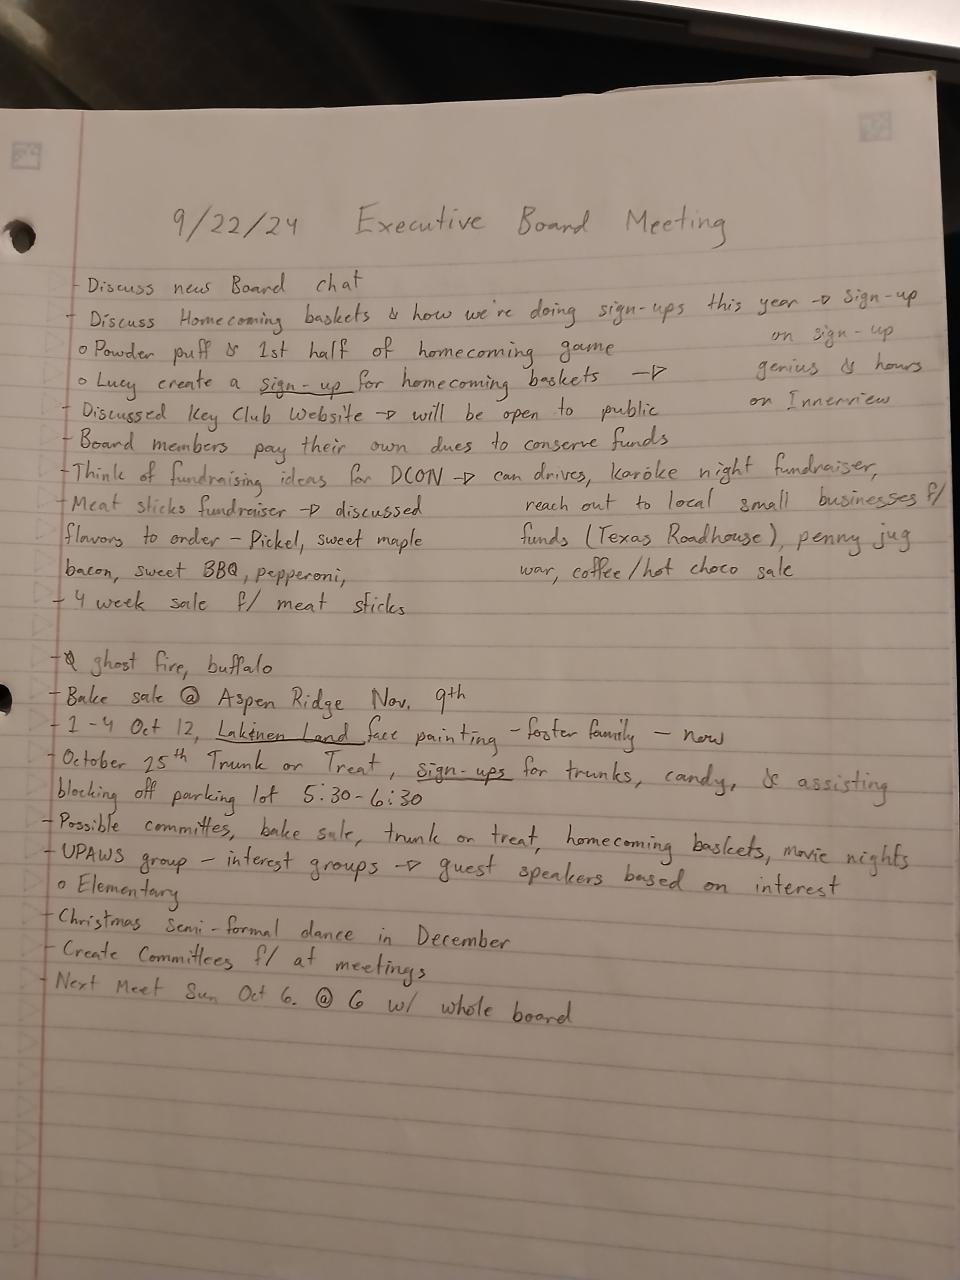 9/22/24 Executive Board Meeting
- Discuss new Board chat
- Discuss Homecoming baskets & how we're doing sign-ups this year → Sign-up
on sign-up
genius & hours
on Innerview
o Powder puff & 1st half of homecoming game
o Lucy create a sign-up for homecoming baskets →
- Discussed Key Club Website → will be open to public
- Board members pay their own dues to conserve funds
- Think of fundraising ideas for DCON → can drives, karoke night fundraiser,
reach out to local small businesses f/
funds (Texas Roadhouse), penny jug
war, coffee/hot choco sale
- Meat sticks fundraiser → discussed
flavors to order - Pickel, sweet maple
bacon, sweet BBQ, pepperoni,
- 4 week sale f/ meat sticks
- ghost fire, buffalo
- Bake sale @ Aspen Ridge Nov. 9th
- 1-4 Oct 12, Lakenen Land face painting - foster family - new
- October 25th Trunk or Treat, sign-ups for trunks, candy, & assisting
blocking off parking lot 5:30-6:30
- Possible committes, bake sale, trunk or treat, homecoming baskets, movie nights
- UPAWS group - interest groups → guest speakers based on interest
o Elementary
- Christmas semi-formal dance in December
- Create Committees f/ at meetings
- Next Meet Sun Oct 6. @ 6 w/ whole board